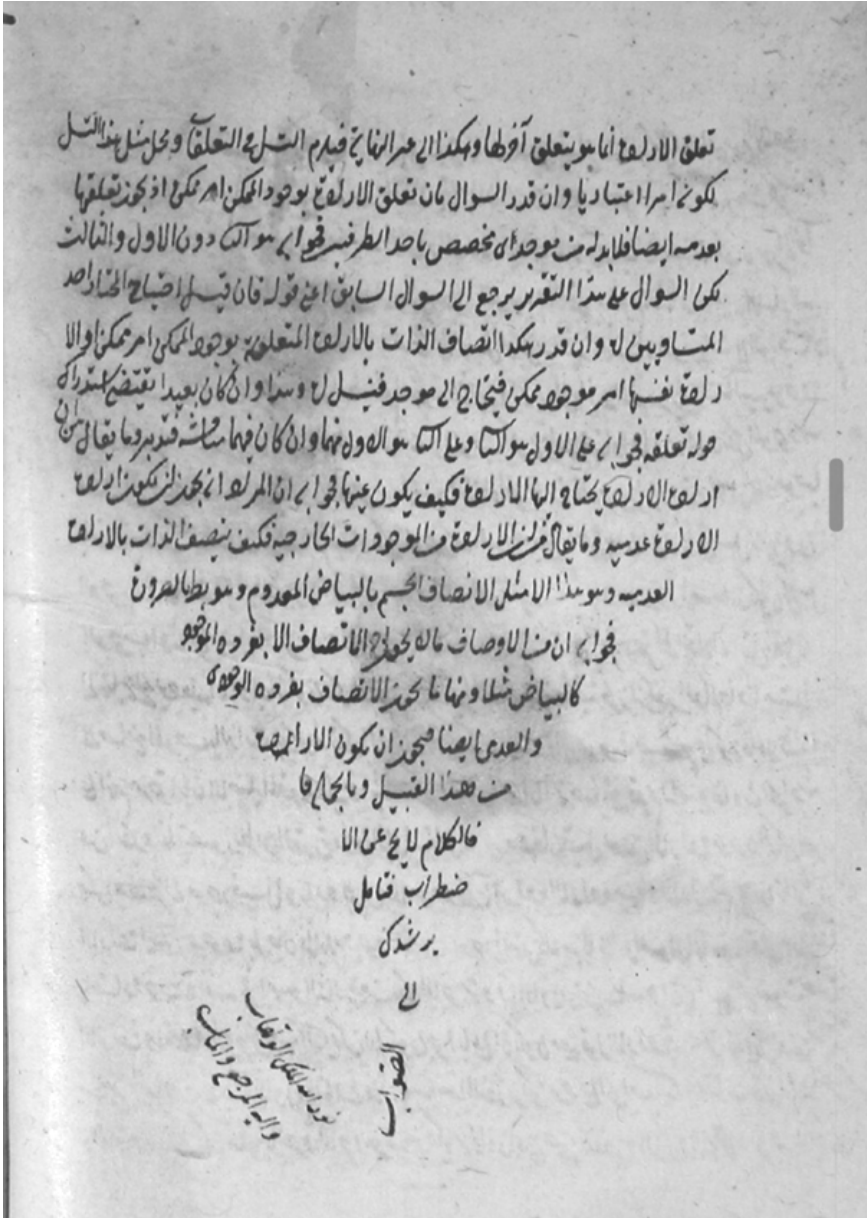 تعلق الارادة انما هو بتعلق آخر لها وهكذا الى غير النهاية فيلزم التسل فى التعلقات ومحل مثل هذا التسل
لكونه امرا اعتباريا وان قدر السوال بان تعلق الارادة بوجود الممكن امر ممكن اذ يجوز تعلقها
بعدمه ايضا فلا بد له من موجد اى مخصص باحد الطرفين فجوابه هو الثانى دون الاول والثالث
لكن السوال على هذا التقرير يرجع الى السوال السابق اعنى قوله فان قيل احتياج المختار احد
المتساويين له وان قدر هكذا اتصاف الذات بالارادة المتعلقة بوجود الممكن امر ممكن او الا
رادة نفسها امر موجود ممكن فيحتاج الى موجد فينسل له وهذا وان كان بعيدا يقتضى استدراك
قوله تعلقه فجوابه على الاول هو الثانى وعلى الثانى هو الاول منهما وان كان فيهما مناقشة فتدبر وما يقال من ان
ارادة الارادة يحتاج اليها الارادة فكيف يكون عينها فجوابه ان المراد انه يجوز ان يكون ارادة
الارادة عدمية وما يقال من ان الارادة من الموجودات الخارجية فكيف يتصف الذات بالارادة
العدمية وهو هذا الا مثل الاتصاف الجسم بالبياض المعدوم وهو بط بالضرورة
فجوابه ان من الاوصاف ماله يجوز الاتصاف الا بفرده الموجود
كالبياض مثلا ومنها ما يجوز الاتصاف بفرده الوجودى
والعدمى ايضا فيجوز ان يكون الارادة
من هذا القبيل وبالجملة
فالكلام لا يخ عن الا
ضطراب فتامل
يرشدك
الى
الصواب
نور الله الملك الوهاب
واليه المرجع والماب